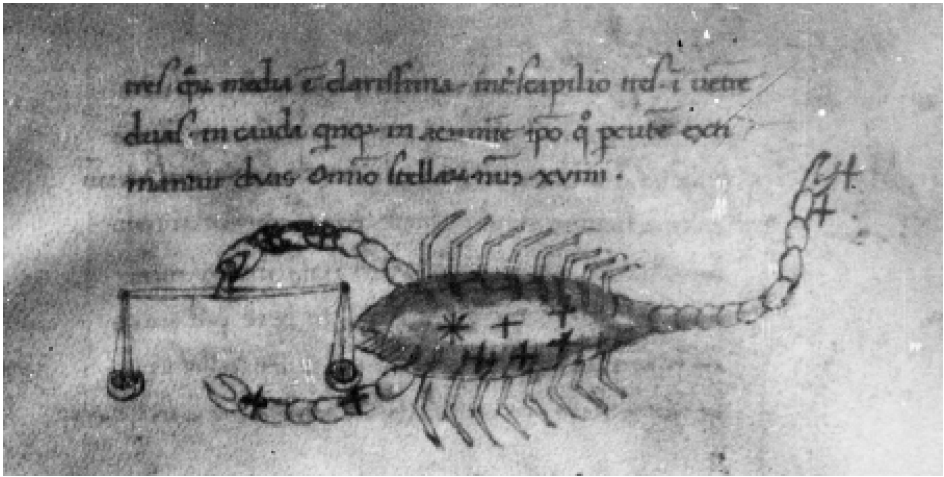 tres. qꝛ̄ media ē clarissima. int̾scapilio tres. ī uētre
duas. in cauda qnqꝫ. in acumīe ipō qͦ ꝑcutē exti
matur duas Omīo stellaꝝ nūs xviiii.